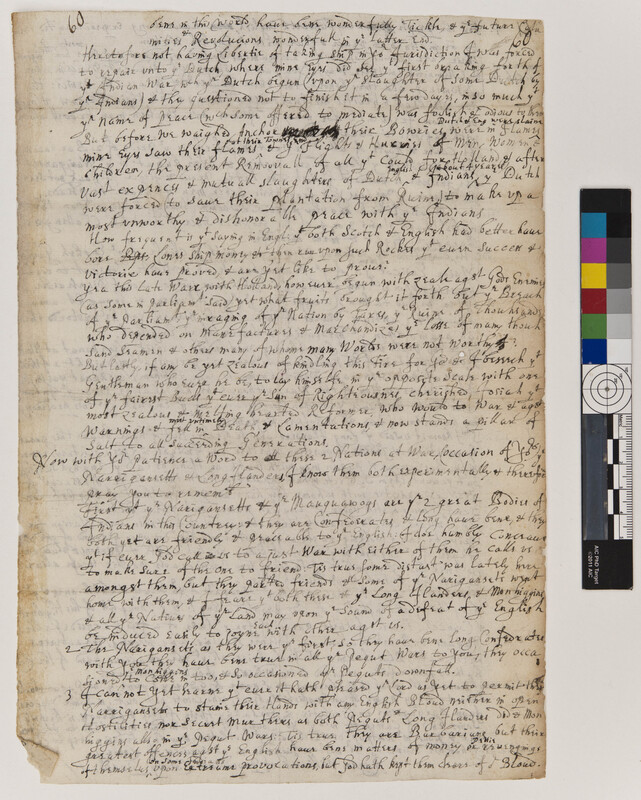 60
bene in the World have bene wonderfully fickle & ye future Cala
mities & Revolutions wonderfull in ye latter End. 60
therefore not having libertie of taking ship in yor Jurisdiction I was forced
to repair unto ye Dutch where mine Eyes did see ye first breaking forth of
ye Indian War wch ye Dutch begun (upon ye slaughter of some Dutch by
ye Indians) & they questioned not to finish it in a few dayes, in so much yt
ye name of Peace (wch some offered to mediate) was foolish & odious to them
But before we weighed Anchor their Bowries were in Flames Dutch & Eng. were slaine
mine Eyes saw their flames at their Towne & ye Flights & Hurries of Men, Women &
Children, the present Remoovall of all yt Could for Holland & after
Vast expences & mutuall slaughters of Dutch English & Indians about 4 yeares ye Dutch
were forced to save their plantation from Ruine to make up a
most unworthy & dishonorable peace with ye Indians
How frequent is yt saying in Engl: yt both Scotch & English had better have
bore Loanes Ship money & then run upon such Rockes yt even success &
victorie have proved & are yet like to prove:
yea this Late War with Holland, however begun with zeale agst Gods Enemies
(as some in Parliamt said) yet what fruits brought it forth but ye Breach
of ye Parliamt ye inraging of ye Nation by Taxes, ye Ruine of Thousands
who depended on Manefactures & Marchandize, ye losse of many thou
sand Seamen & others many of whome many Worlds were not Worthy?
But lastly, if any be yet zealous of kindling this fire for God &c I beseech yt
Gentleman who ever he be, to lay himselfe in ye opposite Scale with one
of ye fairest Buds yt ever ye Sun of Righteousnes cherished, Josiah yt
most zealous & melting hearted Reformer, who would to War & agst
Warnings & fell in most untimely Death & Lamentations & now stands a pillar of
Salt to all succeeding Generations.
Now with yor Patience a Word to these 2 Nations at War (occasion of yors) ye
Narrigansetts & Long Ilanders I know them both experimentally & therefore
pray you to remember
First yt ye Narigansetts & ye Mauquawogs are ye 2 great Bodies of
Indians in this Countrey & they are Confederates & long have bene, & they
both yet are friendly & peaceable to ye English. I doe humbly Conceave
yt if ever God calls us to a just War with either of them he calls us
to make sure of the one to friend. Tis true some distast was lately here
amongst them, but they parted friends & some of ye Narigansets went
home with them, & I feare yt both these & ye Long Ilanders, & Monhiggins
& all ye Natives of ye Land may upon ye Sound of a defeat of ye English
be induced easily to joyne each with other agst us.
2 The Narigansets as they were ye first so they have bene long Confederates
with you they have bene true in all ye Pequt Wars to you, they occa
sioned ye Monhiggins to Come in too, & so occasioned ye Pequts downfall.
3 I cannot yet learne yt ever it hath pleased ye Lord as yet to permit the
Narrigansets to staine their Hands with any English Bloud neither in open
Hostilities nor Secret Murthers as both Pequts & Long Ilanders did & Mon
higgins also in ye Pequt Wars: tis true they are Barbarians but their
greatest offences agst ye English have bene matters of money or pettie revengings
of themselves on some Indians upon Extreame provocations, but God hath kept them cleare of or Bloud.